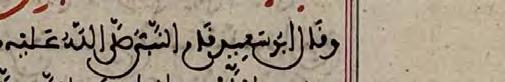 وقال ابو سعيد قام النبي صلى الله عليه